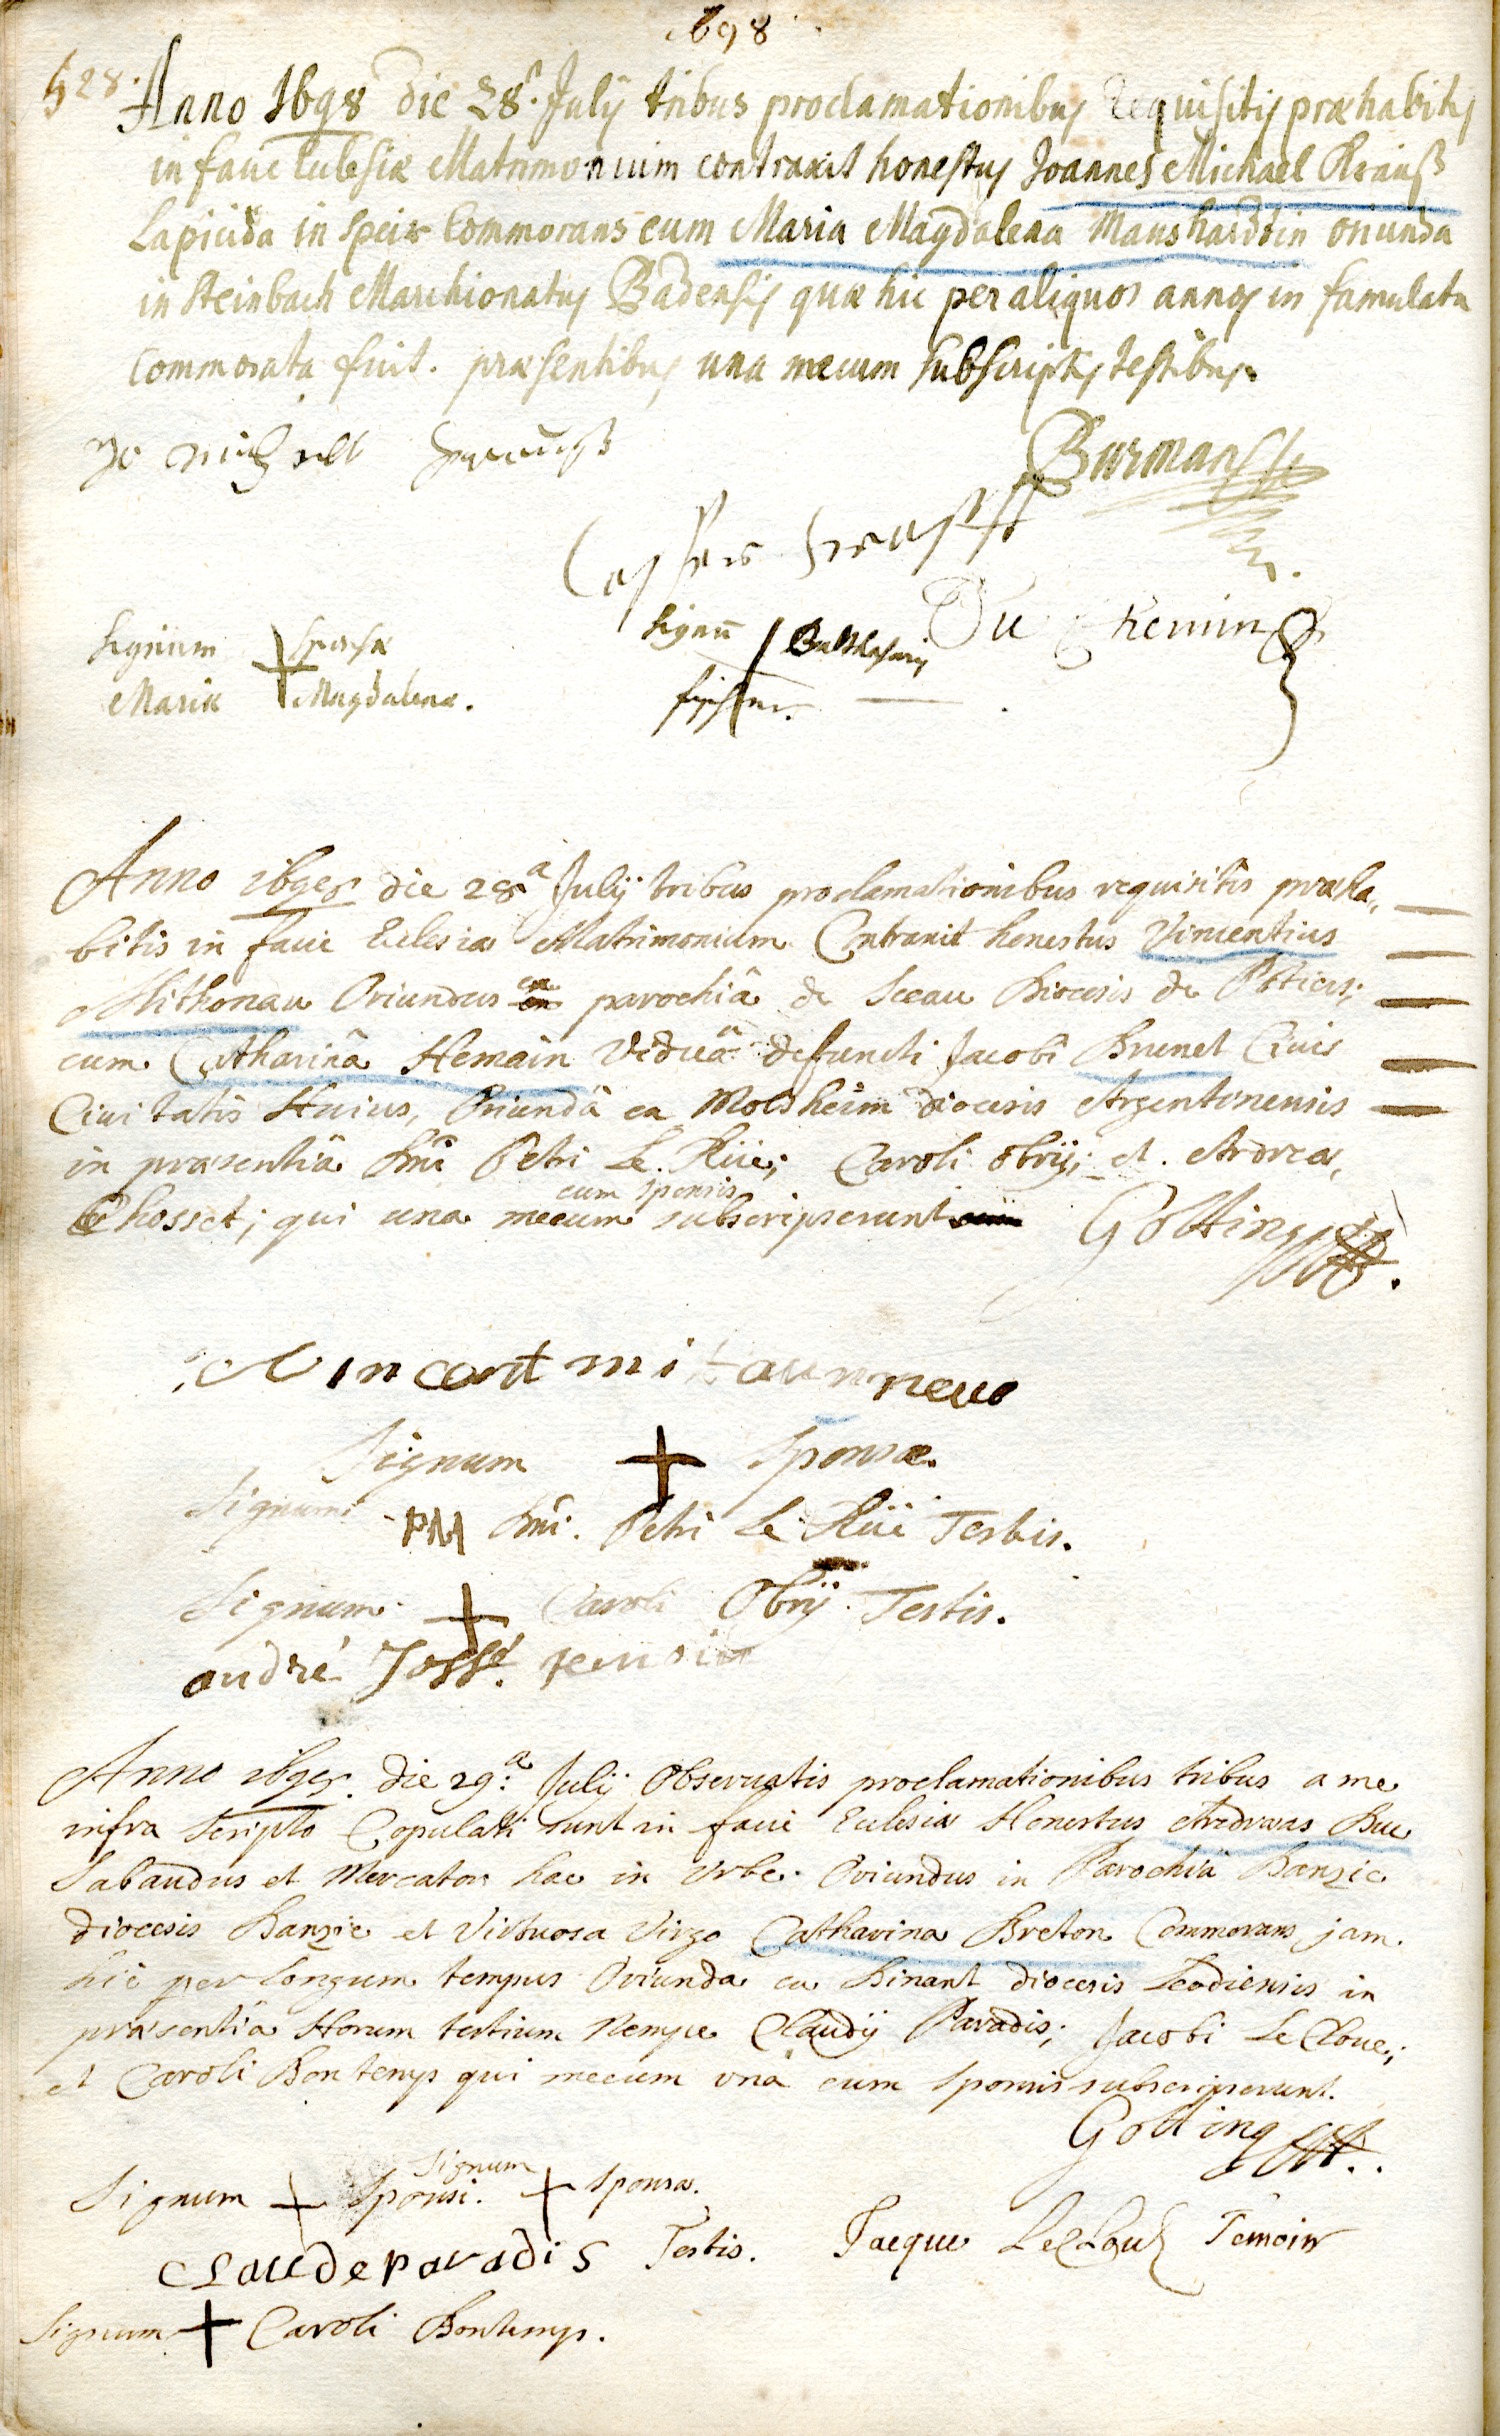 1698
528.
Anno 1698 die 28ª. Julÿ tribus proclamationibus requisitis præhabitis
in facie Eclesiæ Matrimonium contraxit honestus Joannes Michael Krauß
Lapicida in Speir Commorans cum Maria Magdalena Manshardtin oriunda
in Steinbach Marchionatus Badensis quæ hic per aliquos annos in famulatu
commorata fuit. præsentibus una mecum subscriptis testibus.
Burman
Signum + sponsæ
Mariæ Magdalenæ.
Signū Balthasaris
fischer.
Du Chemin
Anno 1698 die 28ª Julÿ tribus proclamationibus requisitis præha„
bitis in facie Eclesiæ Matrimonium Contraxit honestus Vincentius
Mithonau Oriundus ex parochiâ de Sceau Diocesis de Potiers;
cum Catharinâ Hemain Viduâ defuncti Jacobi Brunet Civis
Civitatis Huius, Oriundâ ex Molsheim diocesis Argentonensis
in præsentiâ Dni Petri Le Rüe; Caroli Obrÿ; et Andreæ
Chosset; qui una mecum cum sponsis subscripserunt
Gotting
Vincent mitaunneuo
Signum + Sponsæ.
Signum PM Dni. Petri Le Rüe Testis.
Signum + Caroli Obrÿ Testis.
andré Jossé temoin
Anno 1698. die 29ª. Julÿ Observatis proclamationibus tribus a me
infra scripto Copulati sunt in facie Eclesiæ Honestus Andreas Buc
Sabaudus et Mercator hac in Urbe Oriundus in Parochia Banzie
diocesis Banzie et Virtuosa Virgo Catharina Breton Commorans jam
hic per longum tempus Oriunda ex Dinant diocesis Leodiensis in
præsentiâ Horum testium Nempe Claudÿ Paradis; Jacobi Le Cloue;
et Caroli Bontemps qui mecum una cum Sponsis subscripserunt.
Gotting
Signum + Sponsi. Signum + Sponsæ.
CLaude paradis Testis. Jacque LeClouz Temoin
Signum + Caroli Bontemps.